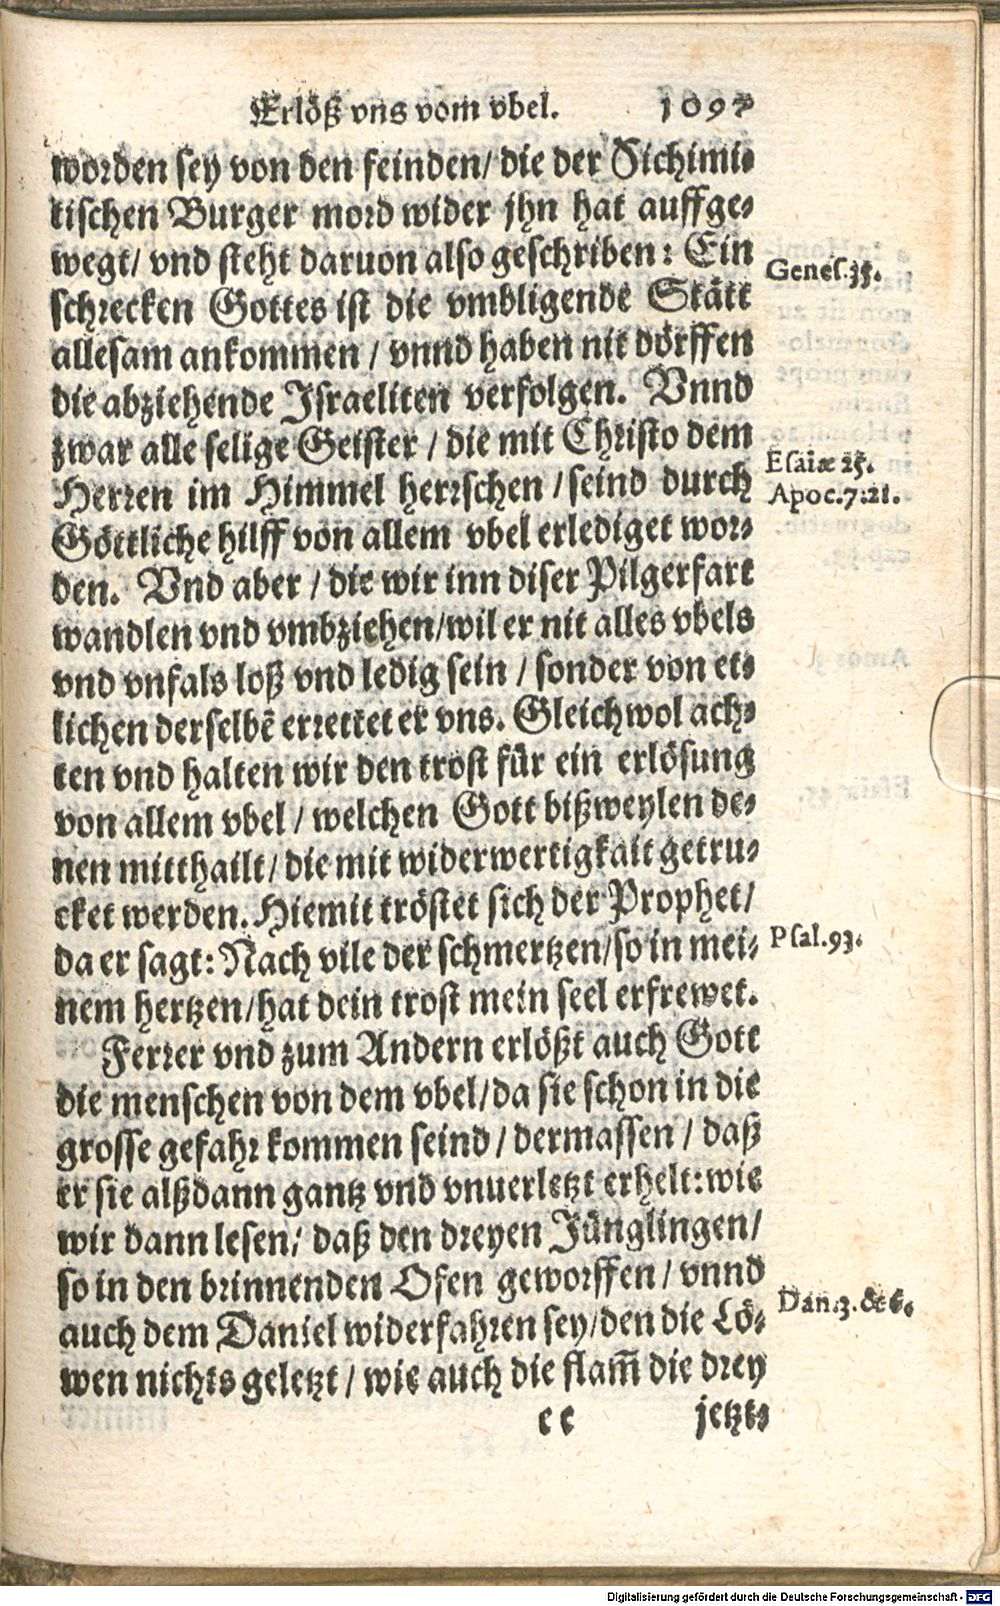 Erlöß vns vom vbel. 1097
worden sey von den feinden/ die der Sichimi-
tischen Burger mord wider jhn hat auffge-
wegt/ vnd steht daruon also geschriben: Ein
Genes.35.
schrecken Gottes ist die vmbligende Stätt
allesam ankommen / vnnd haben nit dörffen
die abziehende Israeliten verfolgen. Vnnd
zwar alle selige Geister / die mit Christo dem
Esaiæ 25.
Herren im Himmel herrschen / seind durch
Apoc.7.21.
Göttliche hilff von allem vbel erlediget wor-
den. Vnd aber / die wir inn diser Pilgerfart
wandlen vnd vmbziehen/wil er nit alles vbels
vnd vnfals loß vnd ledig sein / sonder von et-
lichen derselbē errettet er vns. Gleichwol ach-
ten vnd halten wir den trost für ein erlösung
von allem vbel / welchen Gott bißweylen de-
nen mitthailt/ die mit widerwertigkait getru-
cket werden. Hiemit tröstet sich der Prophet/
da er sagt: Nach vile der schmertzen/so in mei-
Psal.93.
nem hertzen/hat dein trost mein seel erfrewet.
Ferrer vnd zum Andern erlößt auch Gott
die menschen von dem vbel/da sie schon in die
grosse gefahr kommen seind / dermassen / daß
er sie alßdann gantz vnd vnuerletzt erhelt: wie
wir dann lesen/ daß den dreyen Jünglingen/
so in den brinnenden Ofen geworffen / vnnd
auch dem Daniel widerfahren sey/den die Lö-
Dan.3.&6.
wen nichts geletzt / wie auch die flam̄ die drey
cc jetzt-
Digitalisierung gefördert durch die Deutsche Forschungsgemeinschaft - DFG